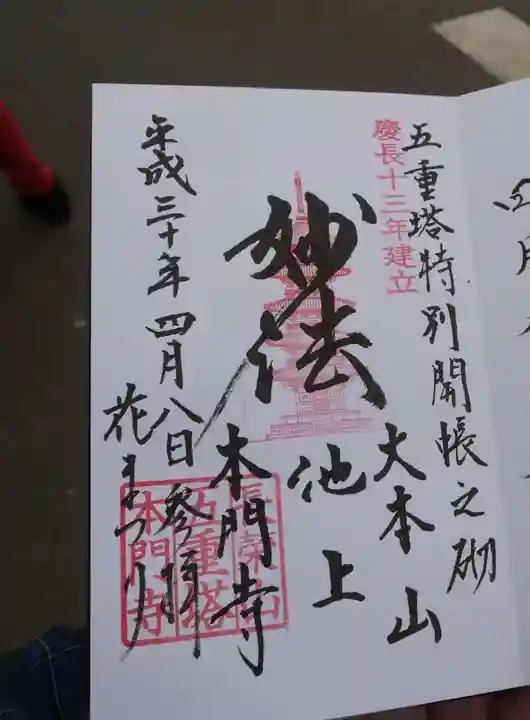 五重塔特別開帳之砌
慶長十三年建立
大本山
妙法
池上
本門寺
平成三十年四月八日参拝
花まつり
長榮山
五重塔
本門寺